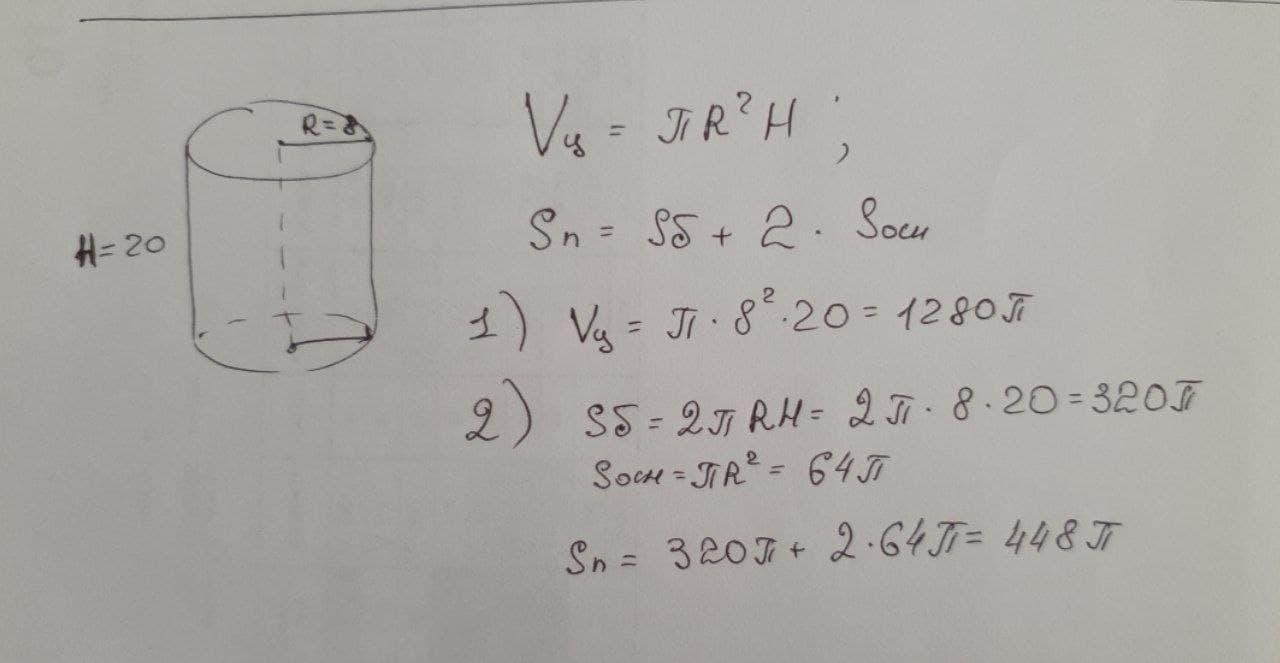 R=8
H=20
Vц = πR²H ;
Sп = Sб + 2 · Sосн
1) Vц = π · 8² · 20 = 1280π
2) Sб = 2πRH = 2π · 8 · 20 = 320π
Sосн = πR² = 64π
Sп = 320π + 2·64π = 448π